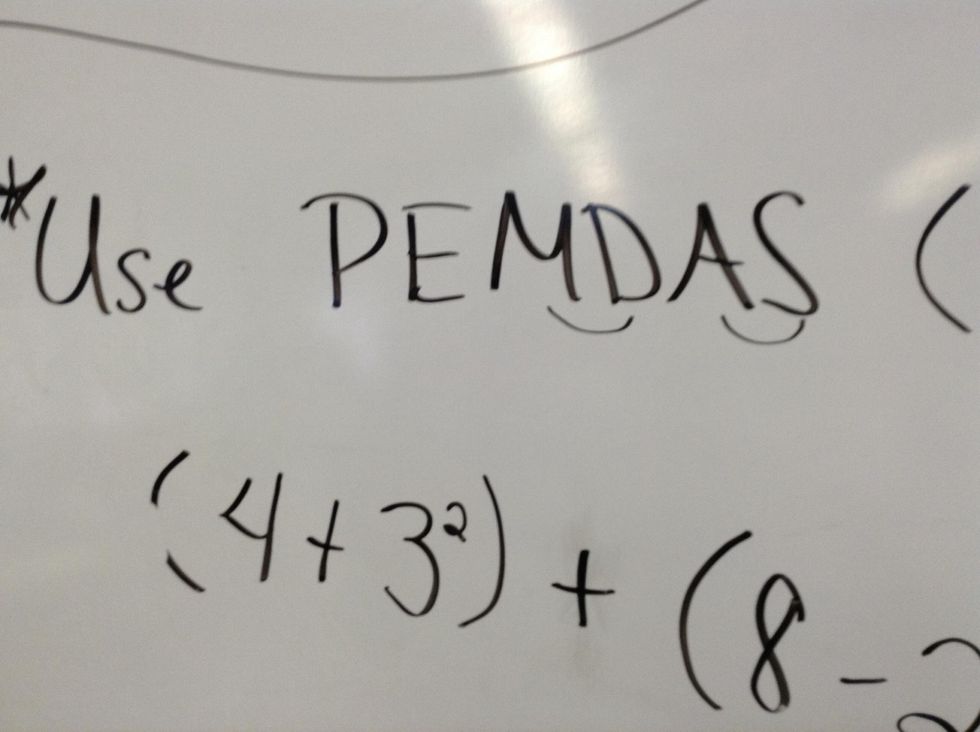 *Use PEMDAS (
(4+3²) + (8-2